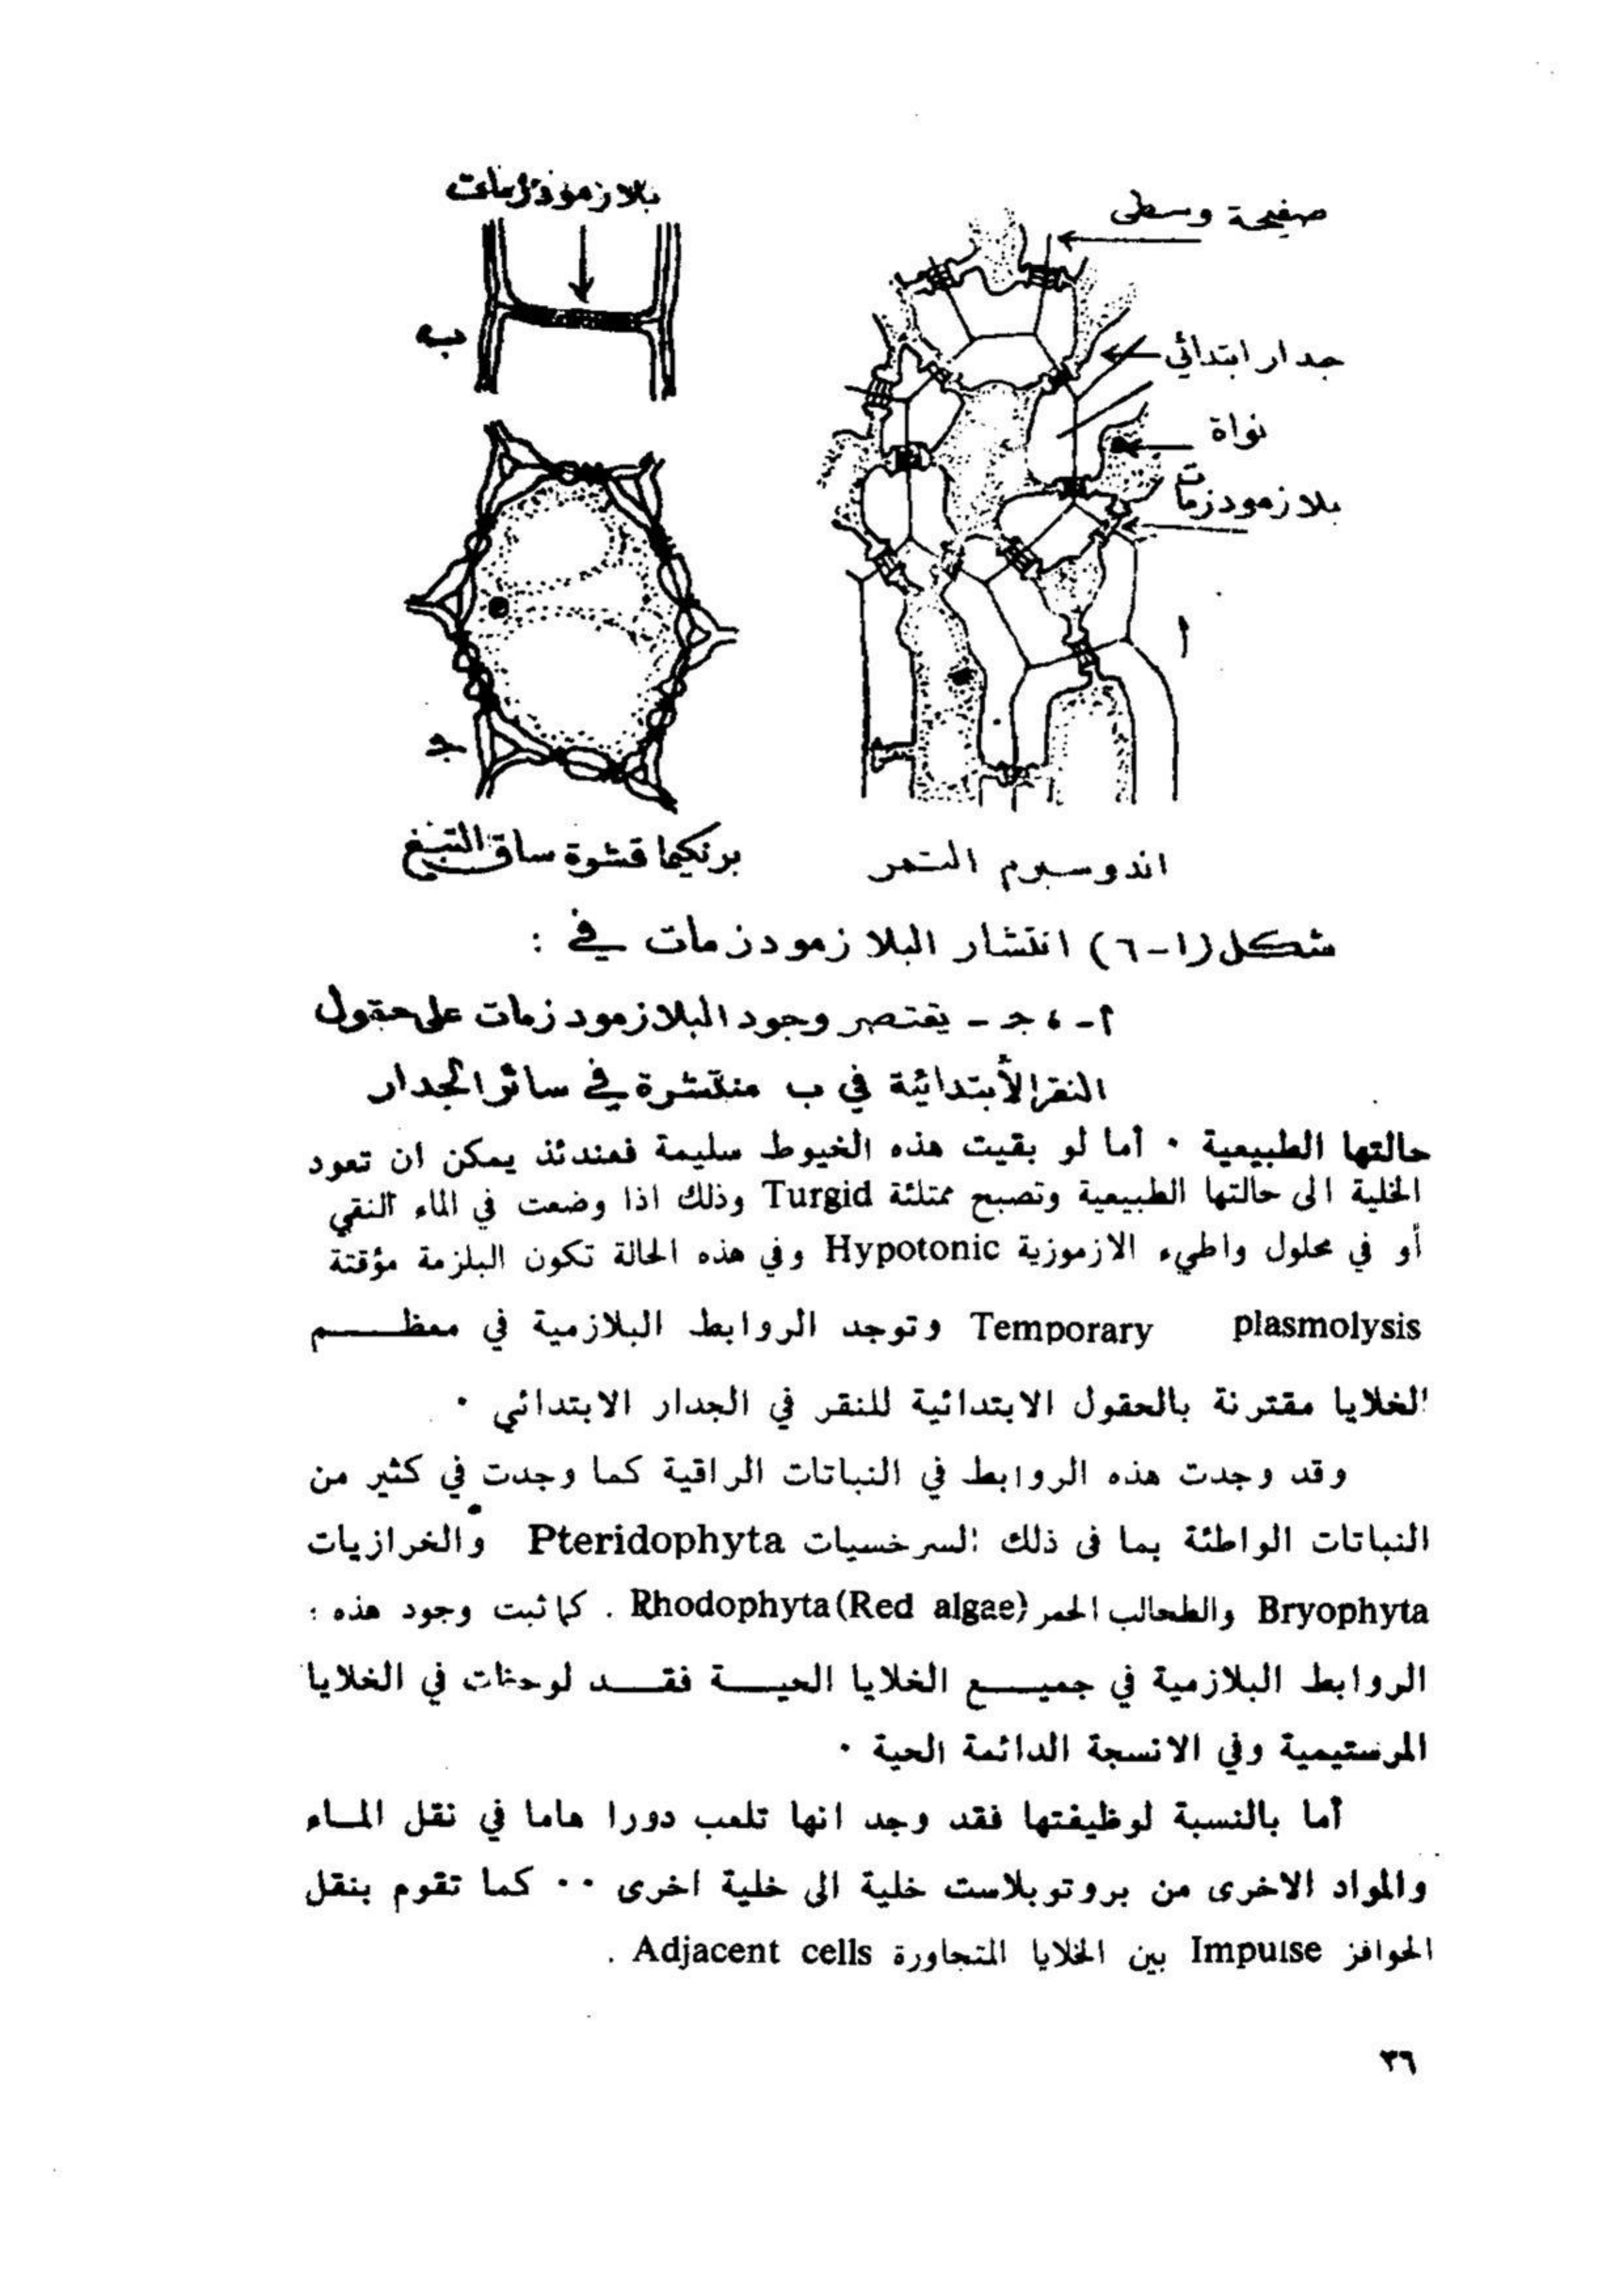 بلازموذزمات
صفيحة وسطى
ب
جدار ابتدائي
نواة
بلازمودزمات
أ
جـ
اندوسبرم التمر
برنكيما قشرة ساق التبغ
شكل (١-٦) انتشار البلازمودزمات في :
أ- ، جـ - يقتصر وجود البلازمودزمات على حقول
النقر الأبتدائية في ب منتشرة في سائر الجدار
حالتها الطبيعية ٠ أما لو بقيت هذه الخيوط سليمة فعندئذ يمكن ان تعود
الخلية الى حالتها الطبيعية وتصبح ممتلئة Turgid وذلك اذا وضعت في الماء النقي
أو في محلول واطيء الازموزية Hypotonic وفي هذه الحالة تكون البلزمة مؤقتة
plasmolysis Temporary وتوجد الروابط البلازمية في معظـــــم
الخلايا مقترنة بالحقول الابتدائية للنقر في الجدار الابتدائي ٠
وقد وجدت هذه الروابط في النباتات الراقية كما وجدت في كثير من
النباتات الواطئة بما في ذلك السرخسيات Pteridophyta والخرازيات
Bryophyta والطحالب الحمر Rhodophyta (Red algae) . كما ثبت وجود هذه :
الروابط البلازمية في جميـــع الخلايا الحيـــة فقـــد لوحظت في الخلايا
المرستيمية وفي الانسجة الدائمة الحية ٠
أما بالنسبة لوظيفتها فقد وجد انها تلعب دورا هاما في نقل المـاء
والمواد الاخرى من بروتوبلاست خلية الى خلية اخرى ٠٠ كما تقوم بنقل
الحوافز Impulse بين الخلايا المتجاورة Adjacent cells .
٣٦